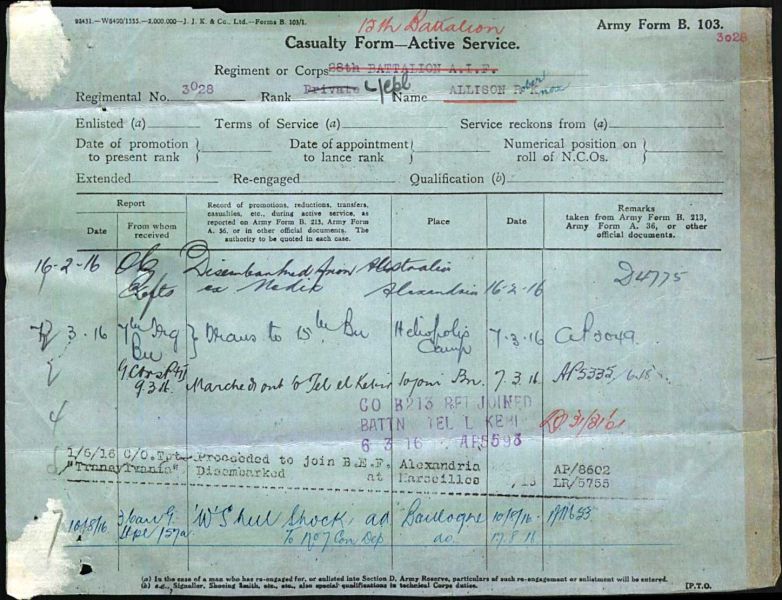 93431.—W8400/1555.—2,000,000—J. J. K. & Co., Ltd.—Forms B. 103/1.
Army Form B. 103.
15th Battalion
3028
Casualty Form—Active Service.
Regiment or Corps 28th BATTALION A.I.F.
Regimental No. 3028 Rank Private L/Cpl Name ALLISON R.K. obert nox
Enlisted (a) Terms of Service (a) Service reckons from (a)
Date of promotion to present rank } Date of appointment to lance rank } Numerical position on roll of N.C.Os. }
Extended Re-engaged Qualification (b)
Report
Date
From whom received
Record of promotions, reductions, transfers, casualties, etc., during active service, as reported on Army Form B. 213, Army Form A. 36, or in other official documents. The authority to be quoted in each case.
Place
Date
Remarks taken from Army Form B. 213, Army Form A. 36, or other official documents.
16-2-16 Disembarked from Australia
ex Alexandria 16-2-16 D4775
3.16 7th Trg Bn } Trans to 15th Bn Heliopolis Camp 7.3.16 AP5049
9.3.16 Marched out to Tel el Kebir to join Bn. 7.3.16 AP5335
CO B213 RFT JOINED
BATTN TEL L KEBI
6 3 16 AP5593
1/6/16 C/O. Tpt. Proceeded to join B.E.F. Alexandria AP/8602
"Transylvania" Disembarked at Marseilles LR/5755
10/8/16 'W' Shell Shock ad Boulogne 10/8/16
To No 7 Con Dep do. 17.8.16
(a) In the case of a man who has re-engaged for, or enlisted into Section D, Army Reserve, particulars of such re-engagement or enlistment will be entered.
(b) e.g., Signaller, Shoeing Smith, etc., etc., also special qualifications in technical Corps duties.
[P.T.O.